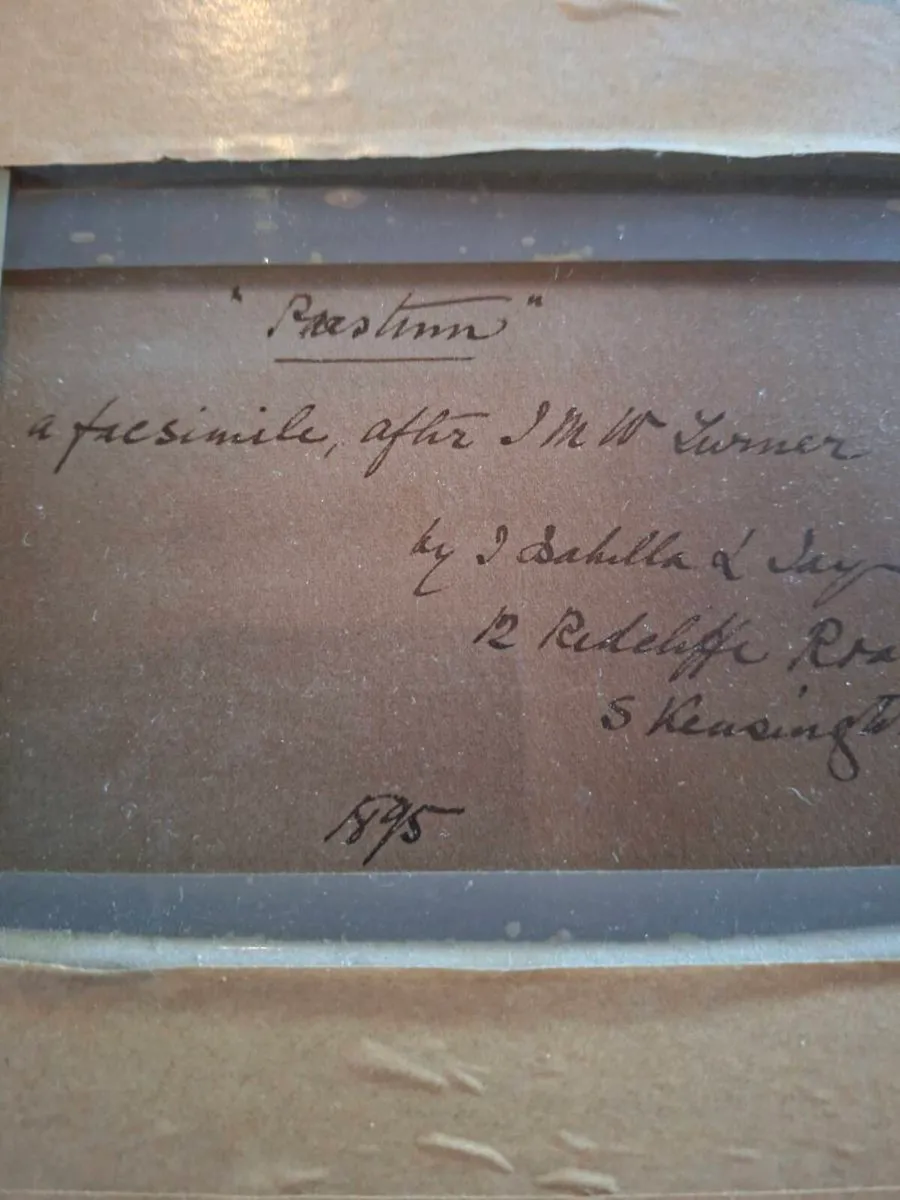 "Paestum"
a facsimile, after J M W Turner
by J Isabella L Jay
12 Redcliffe Roa
S Kensingt
1895